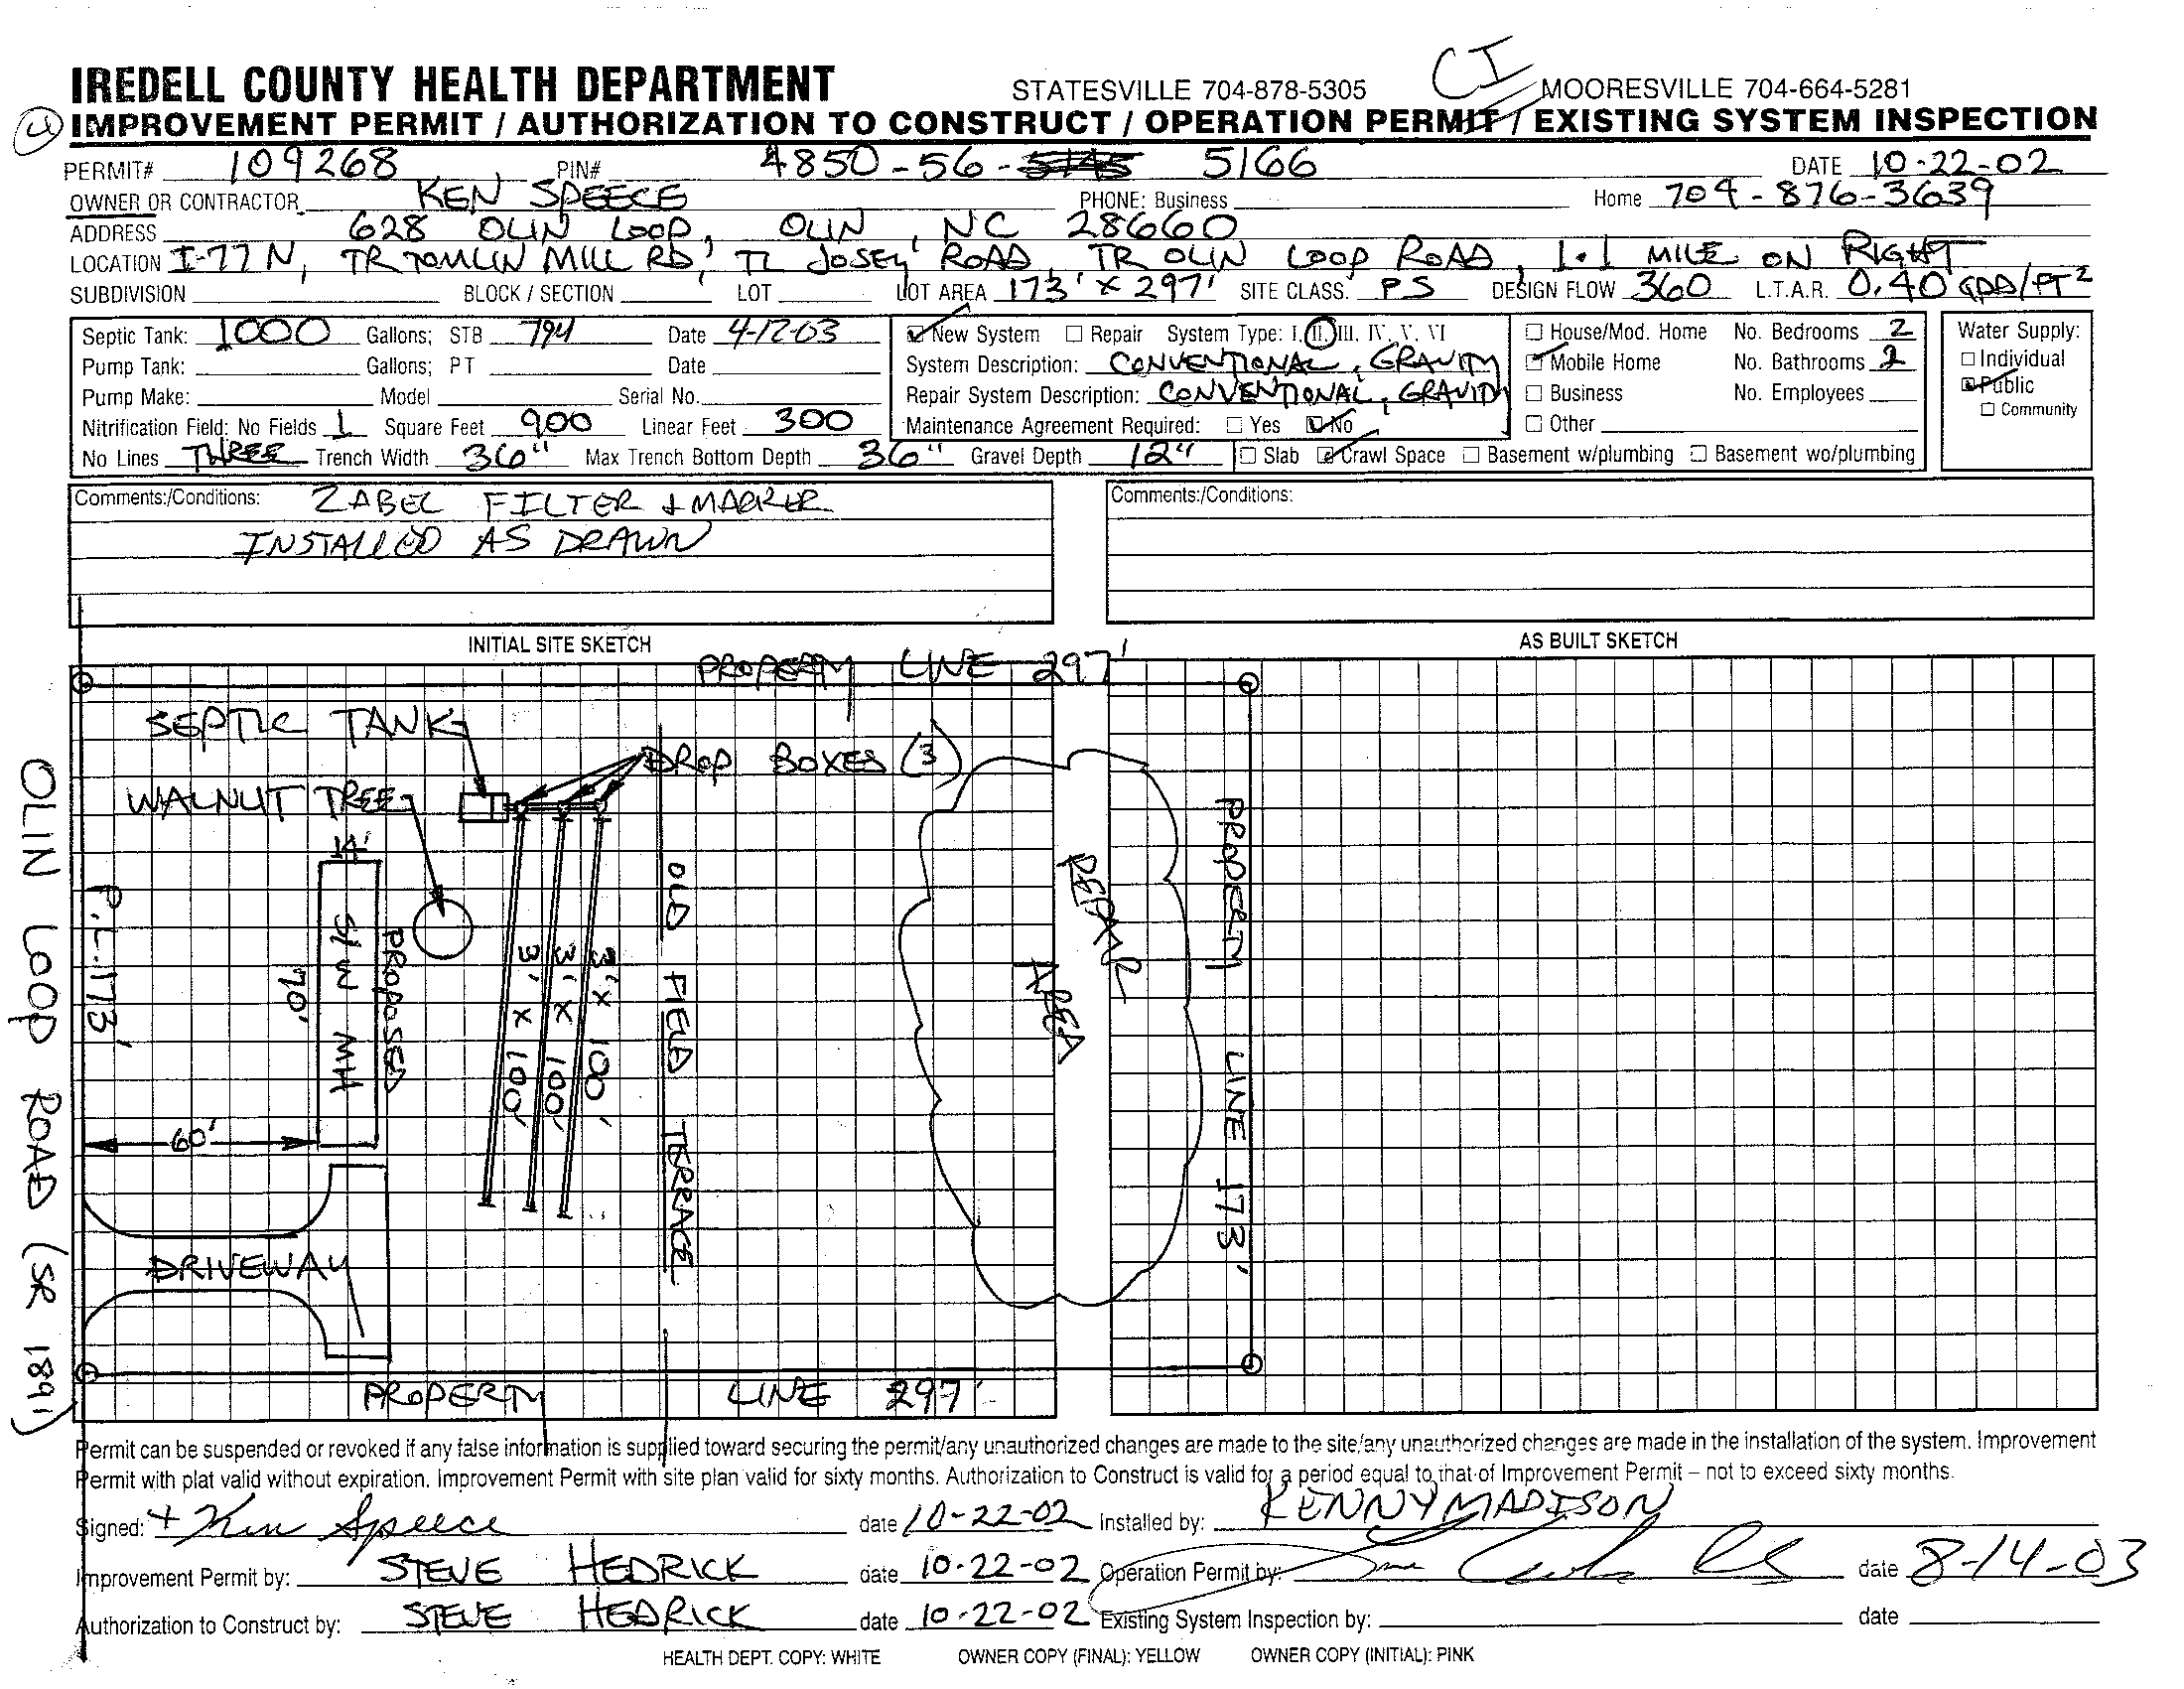 IREDELL COUNTY HEALTH DEPARTMENT STATESVILLE 704-878-5305 CI MOORESVILLE 704-664-5281
IMPROVEMENT PERMIT / AUTHORIZATION TO CONSTRUCT / OPERATION PERMIT / EXISTING SYSTEM INSPECTION
PERMIT# 109268 PIN# 4850-56- 5166 DATE 10-22-02
OWNER OR CONTRACTOR KEN SPEECE PHONE: Business Home 704-876-3639
ADDRESS 628 OLIN LOOP, OLIN, NC 28660
LOCATION I-77 N, TR TOMLIN MILL RD, TL JOSEY ROAD, TR OLIN LOOP ROAD, 1.1 MILE ON RIGHT
SUBDIVISION BLOCK / SECTION LOT LOT AREA 173' X 297' SITE CLASS. PS DESIGN FLOW 360 L.T.A.R. 0.40 GPD/FT2
Septic Tank: 1000 Gallons; STB 794 Date 4-12-03
Pump Tank: Gallons; PT Date
Pump Make: Model Serial No.
Nitrification Field: No Fields 1 Square Feet 900 Linear Feet 300
No Lines THREE Trench Width 36" Max Trench Bottom Depth 36" Gravel Depth 12"
New System Repair System Type: I, II, III, IV, V, VI
System Description: CONVENTIONAL, GRAVITY
Repair System Description: CONVENTIONAL, GRAVITY
Maintenance Agreement Required: Yes No
Slab Crawl Space Basement w/plumbing Basement wo/plumbing
House/Mod. Home No. Bedrooms 2
Mobile Home No. Bathrooms 2
Business No. Employees
Other
Water Supply:
Individual
Public
Community
Comments:/Conditions: ZABEL FILTER + MARKER
INSTALLED AS DRAWN
Comments:/Conditions:
INITIAL SITE SKETCH
AS BUILT SKETCH
PROPERTY LINE 297'
SEPTIC TANK
DROP BOXES (3)
WALNUT TREE
14'
70'
S/W MH
PROPOSED
3' X 100'
3' X 100'
3' X 100'
OLD FIELD TERRACE
REPAIR AREA
PROPERTY LINE 173'
OLIN LOOP ROAD (SR 1891)
P.L. 173'
60'
DRIVEWAY
PROPERTY LINE 297'
Permit can be suspended or revoked if any false information is supplied toward securing the permit/any unauthorized changes are made to the site/any unauthorized changes are made in the installation of the system. Improvement
Permit with plat valid without expiration. Improvement Permit with site plan valid for sixty months. Authorization to Construct is valid for a period equal to that of Improvement Permit – not to exceed sixty months.
Signed: + Ken Speece date 10-22-02 Installed by: KENNY MADISON
Improvement Permit by: STEVE HEDRICK date 10-22-02 Operation Permit by: date 8-14-03
Authorization to Construct by: STEVE HEDRICK date 10-22-02 Existing System Inspection by: date
HEALTH DEPT. COPY: WHITE OWNER COPY (FINAL): YELLOW OWNER COPY (INITIAL): PINK